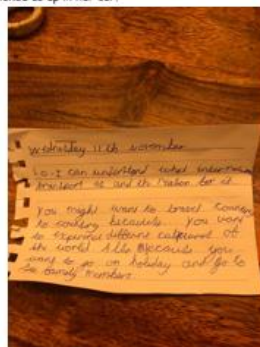 Wednesday 11th November
L.O. I can understand what
transport is and the reason for it
You might want to travel
to country because. You want
to different of
the world. Also because you
want to go on holiday and go to
see family members.